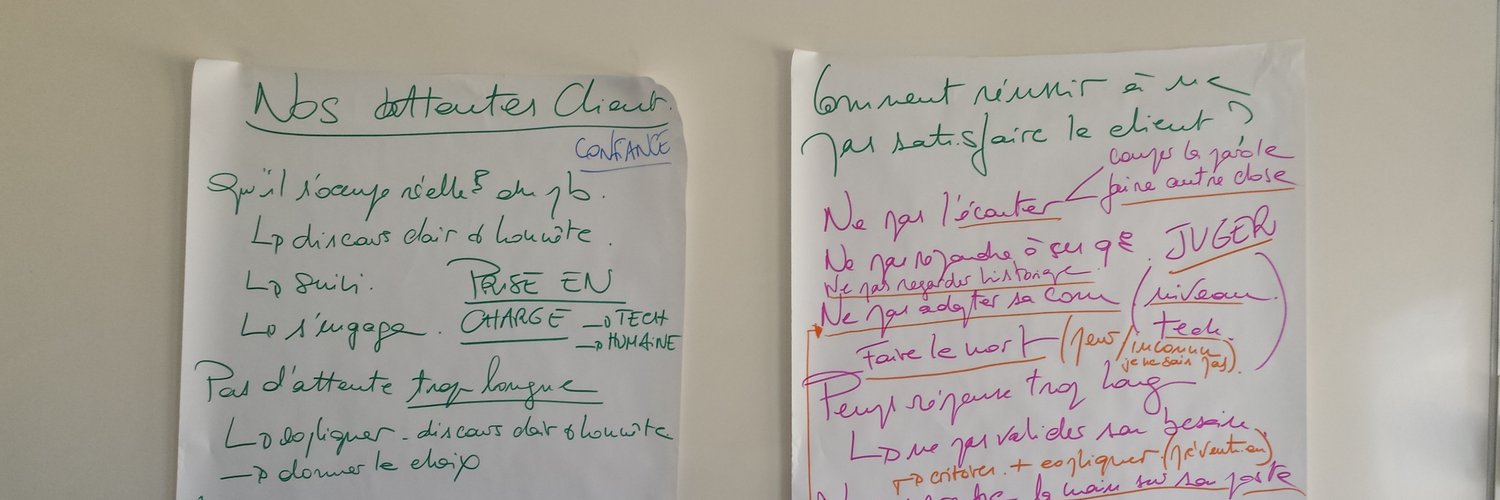 Nos attentes Client.
CONFIANCE
Qu'il s'occupe réellemt du pb.
↳ discours clair & honnête.
↳ Suivi.
PRISE EN
CHARGE → TECH
→ HUMAINE
↳ s'engage.
Pas d'attente trop longue
↳ expliquer - discours clair & honnête
→ donner le choix
Comment réussir à ne
pas satisfaire le client ?
couper la parole
faire autre chose
Ne pas l'écouter
Ne pas répondre à ses
JUGER
Ne pas regarder historique
Ne pas adapter sa com (niveau
tech.)
Faire le mort (peur/inconnu
je ne sais pas).
Temps réponse trop long
↳ ne pas valider son besoin.
→ critères + expliquer (prévention)
la main sur son poste